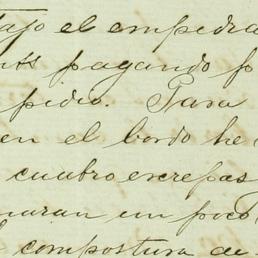 tajo el empedra
pagando p
pidio. Para
en el bordo he
cuatro escrepas
maran un poco
compostura de